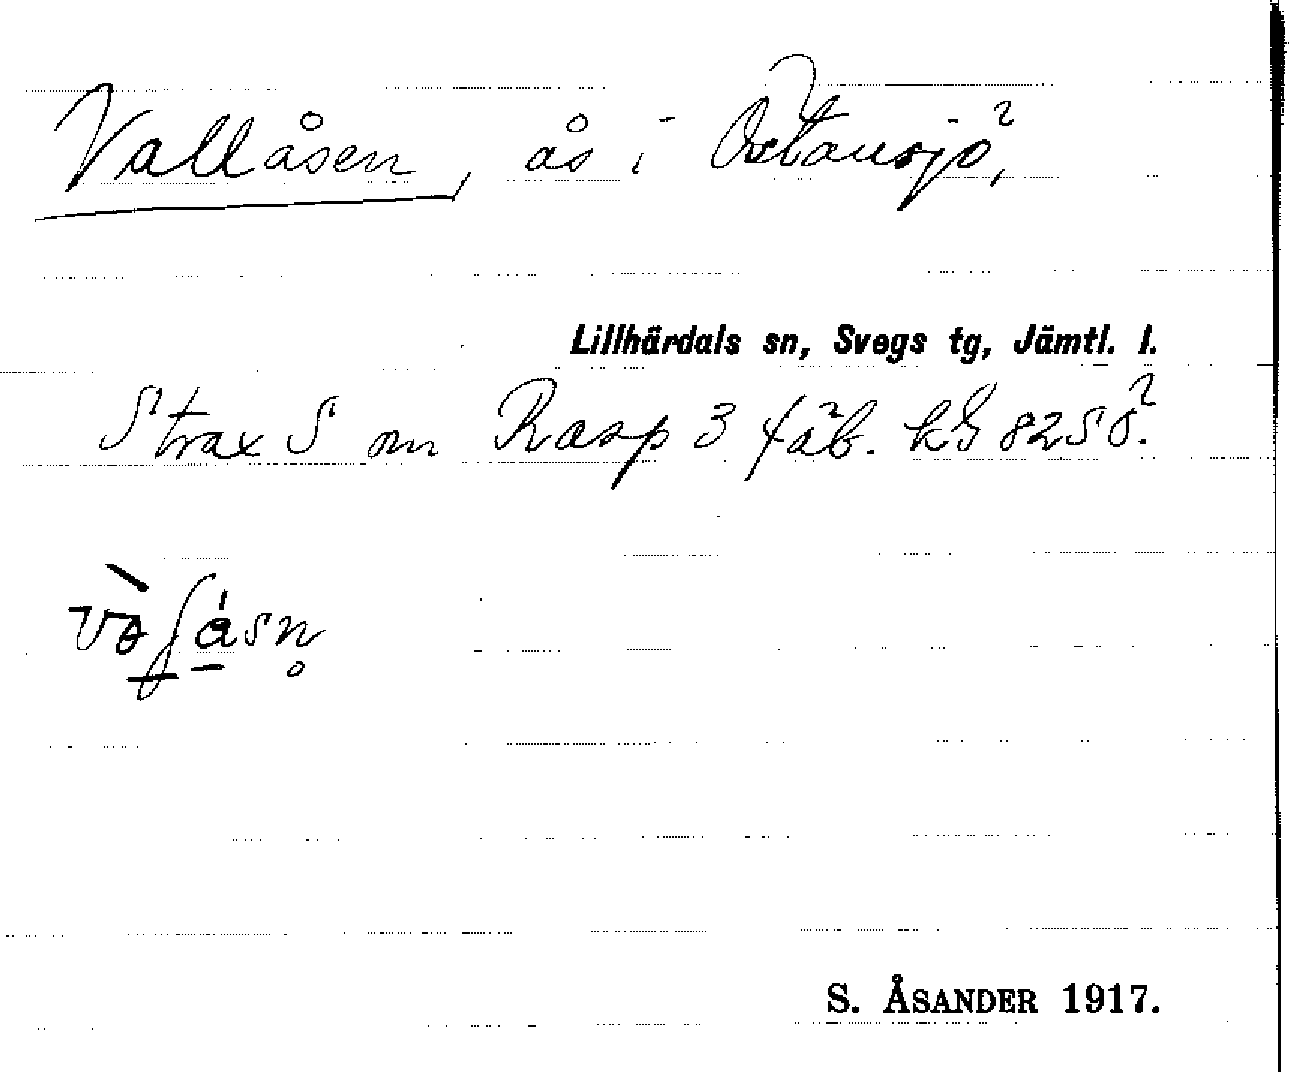 Vallåsen, ås i Östansjö,
Lillhärdals sn, Svegs tg, Jämtl. l.
Strax S om Rasp 3 fäb. kG 82SÖ.
S. ÅSANDER 1917.